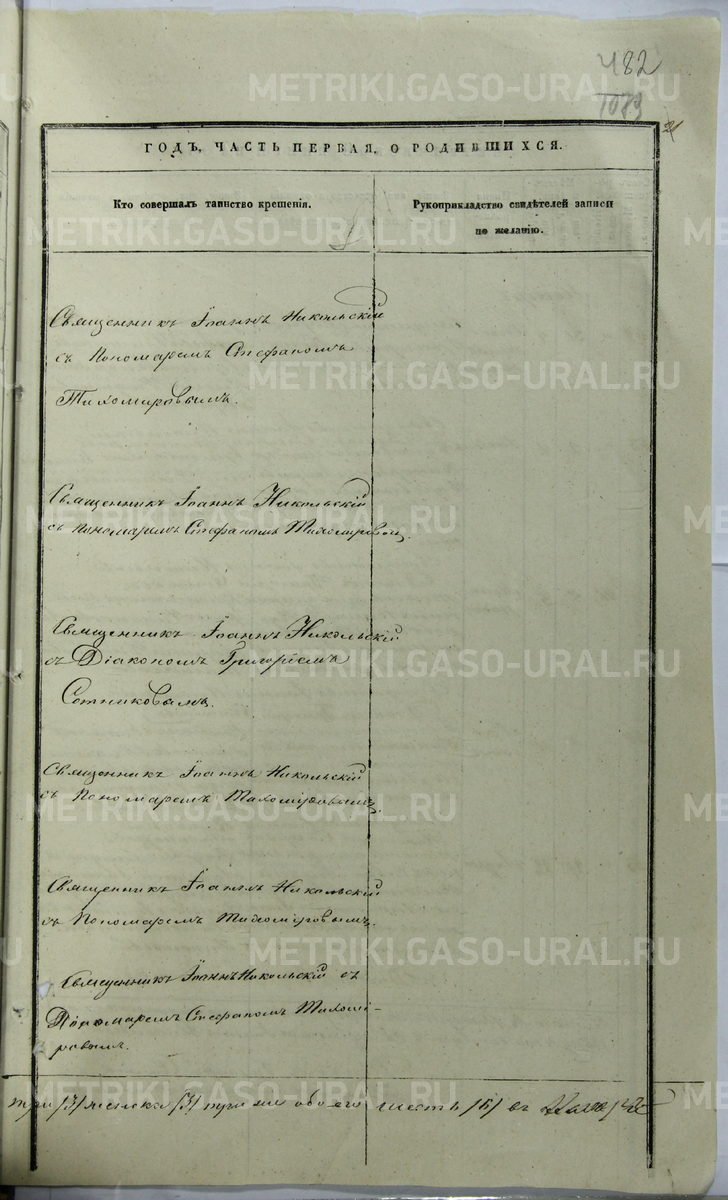 482
1089
21
ГОДЪ, ЧАСТЬ ПЕРВАЯ, О РОДИВШИХСЯ.
Кто совершалъ таинство крещенія.
Рукоприкладство свидѣтелей записи
по желанію.
Священникъ Іоаннъ Никольскій
съ Пономаремъ Стефаномъ
Тихомировымъ.
Священникъ Іоаннъ Никольскій
съ Пономаремъ Стефаномъ Тихомировым.
Священникъ Іоаннъ Никольскій
съ Діакономъ Григоріемъ
Сотниковымъ.
Священникъ Іоаннъ Никольскій
съ Пономаремъ Тихоміровымъ.
Священникъ Іоаннъ Никольскій
съ Пономаремъ Тихоміровымъ.
Священникъ Іоаннъ Никольскій съ
Пономаремъ Стефаномъ Тихомі-
ровымъ.
три /3/ женска /3/ три обоего шесть /6/
METRIKI.GASO-URAL.RU